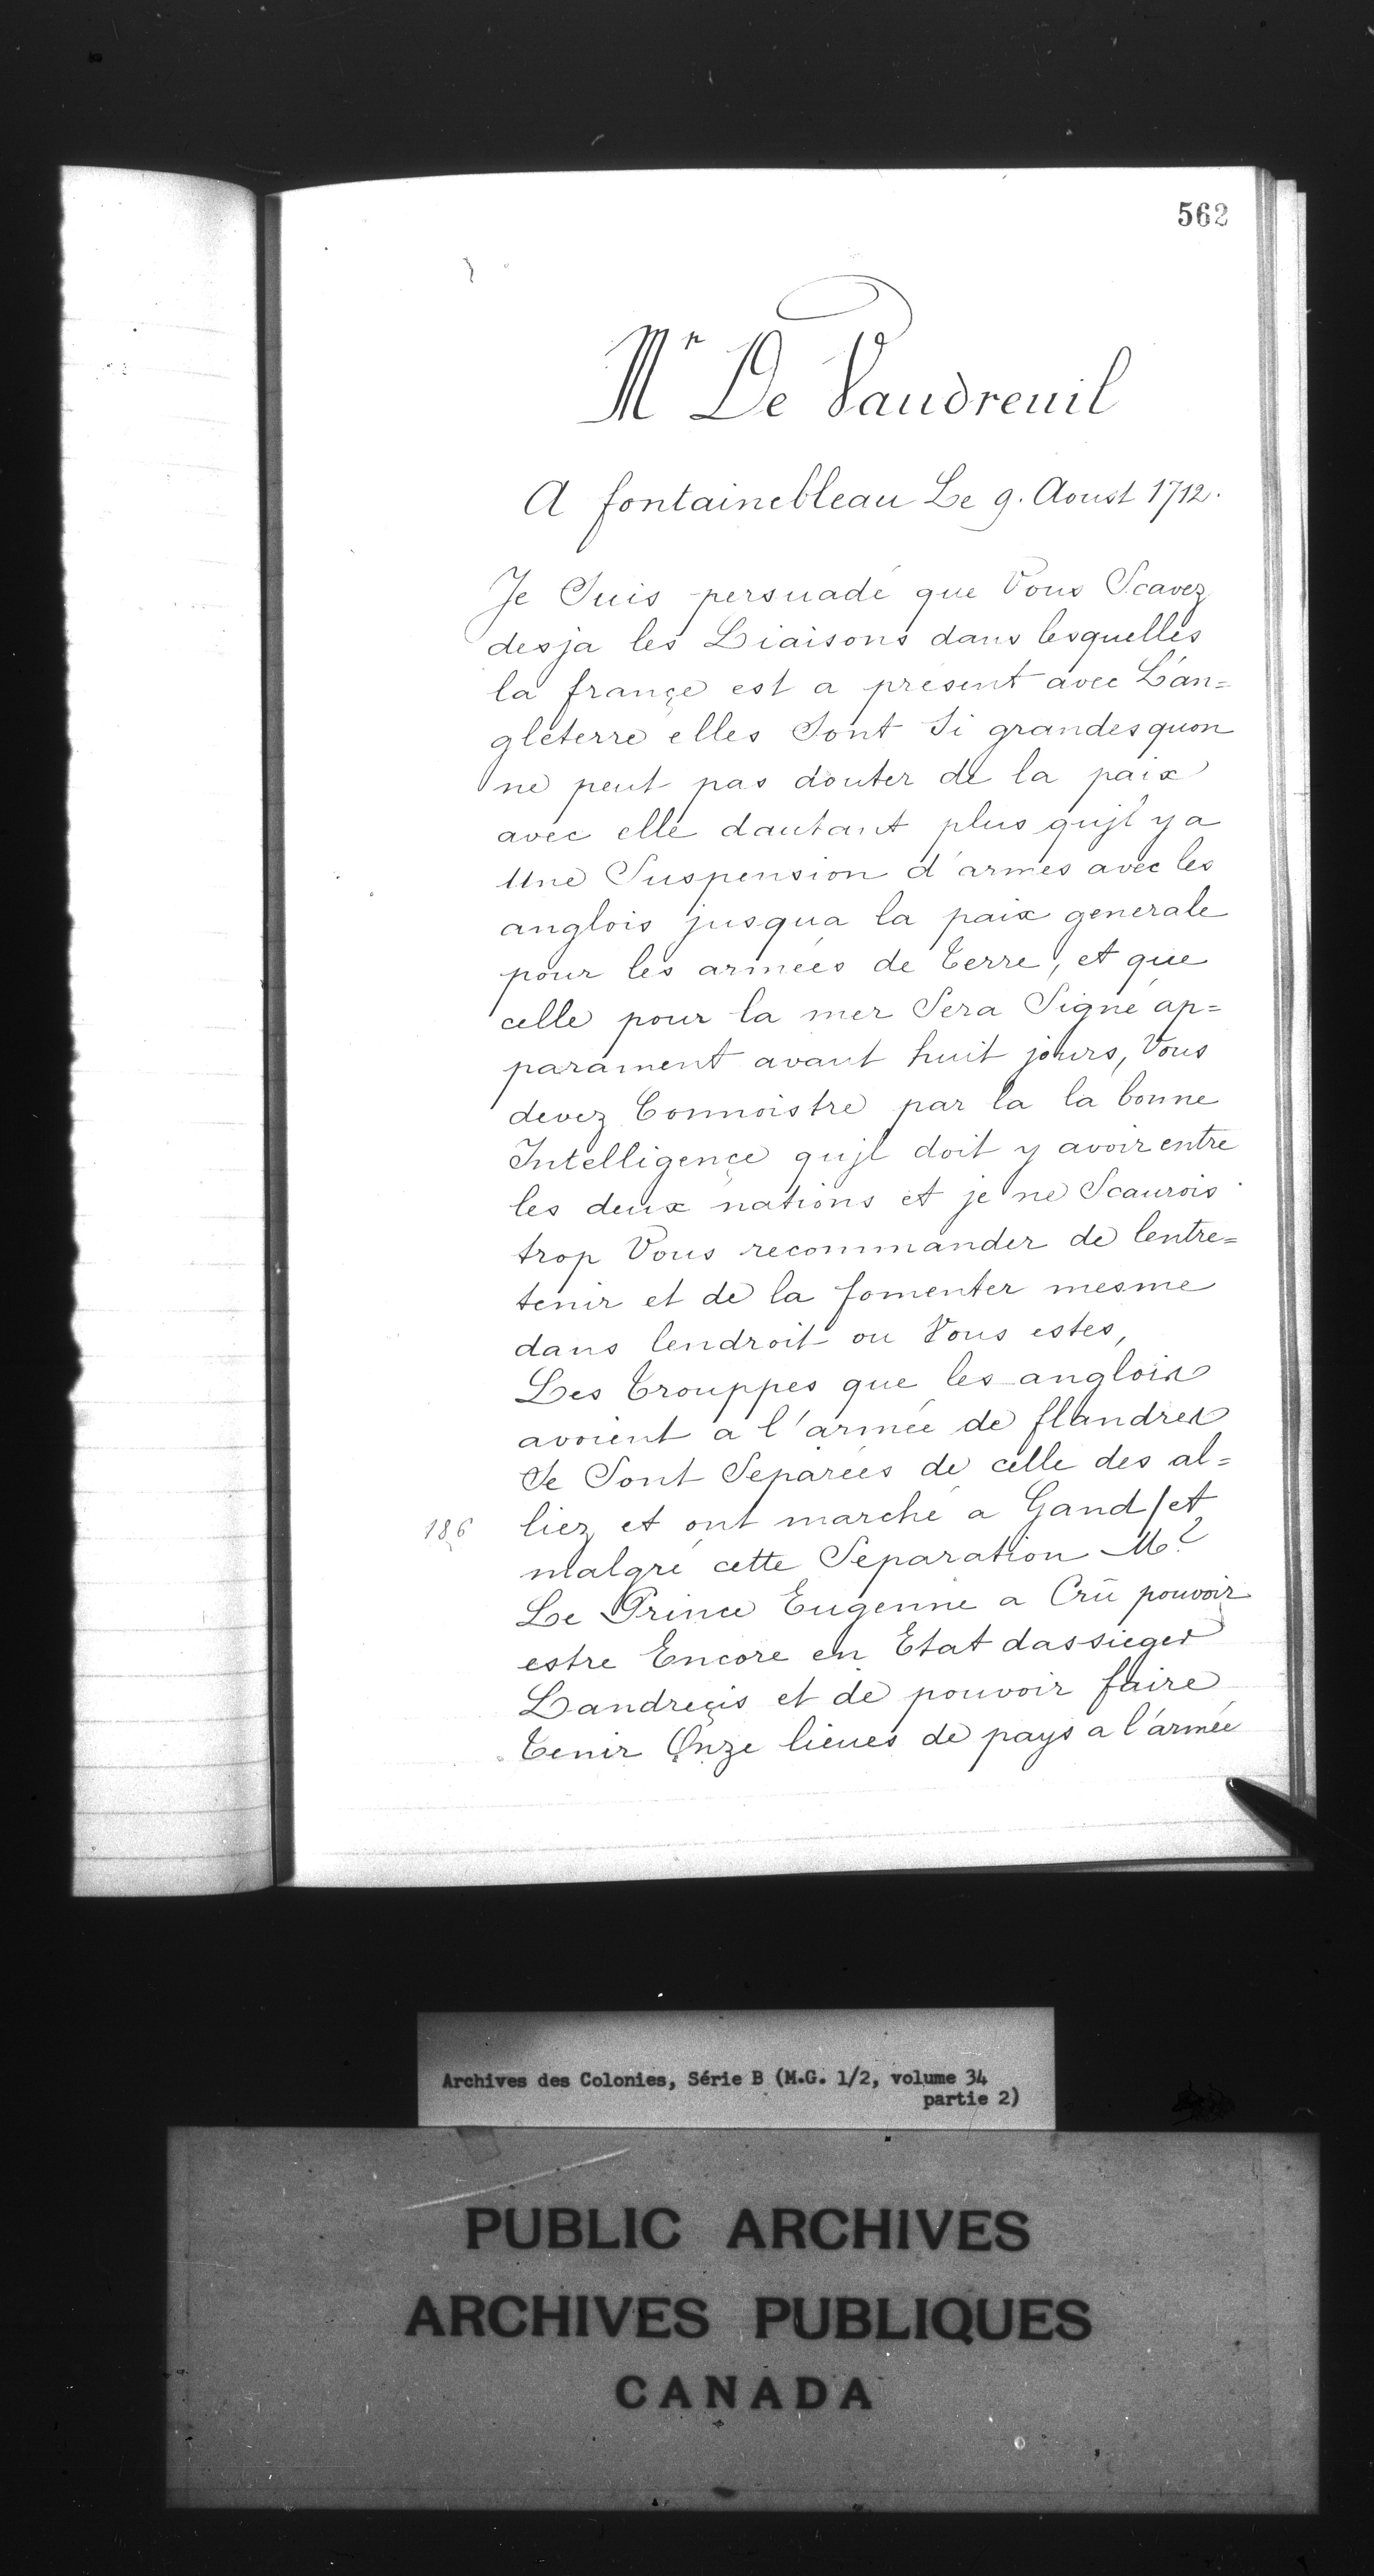 562
Mr De Vaudreuil
A fontainebleau Le 9. Aoust 1712.
Je Suis persuadé que Vous Scavez
desja les Liaisons dans lesquelles
la françe est a présent avec L'an=
gleterre elles Sont Si grandes quon
ne peut pas douter de la paix
avec elle dautant plus qujl y a
Une Suspension d'armes avec les
anglois jusqua la paix generale
pour les armées de Terre, et que
celle pour la mer Sera Signé ap=
parament avant huit jours, Vous
devez Connoistre par la la bonne
Intelligençe qujl doit y avoir entre
les deux nations et je ne Scaurois
trop Vous recommander de lentre=
tenir et de la fomenter mesme
dans lendroit ou Vous estes,
Les Trouppes que les anglois
avoient a l'armée de flandres
Se Sont Separées de celle des al=
186 liez et ont marché a Gand / et
malgré cette Separation Mr
Le Prince Eugenne a Crû pouvoir
estre Encore en Etat dassieger
Landreçis et de pouvoir faire
Tenir Onze lieues de pays a l'armée
Archives des Colonies, Série B (M.G. 1/2, volume 34
partie 2)
PUBLIC ARCHIVES
ARCHIVES PUBLIQUES
CANADA